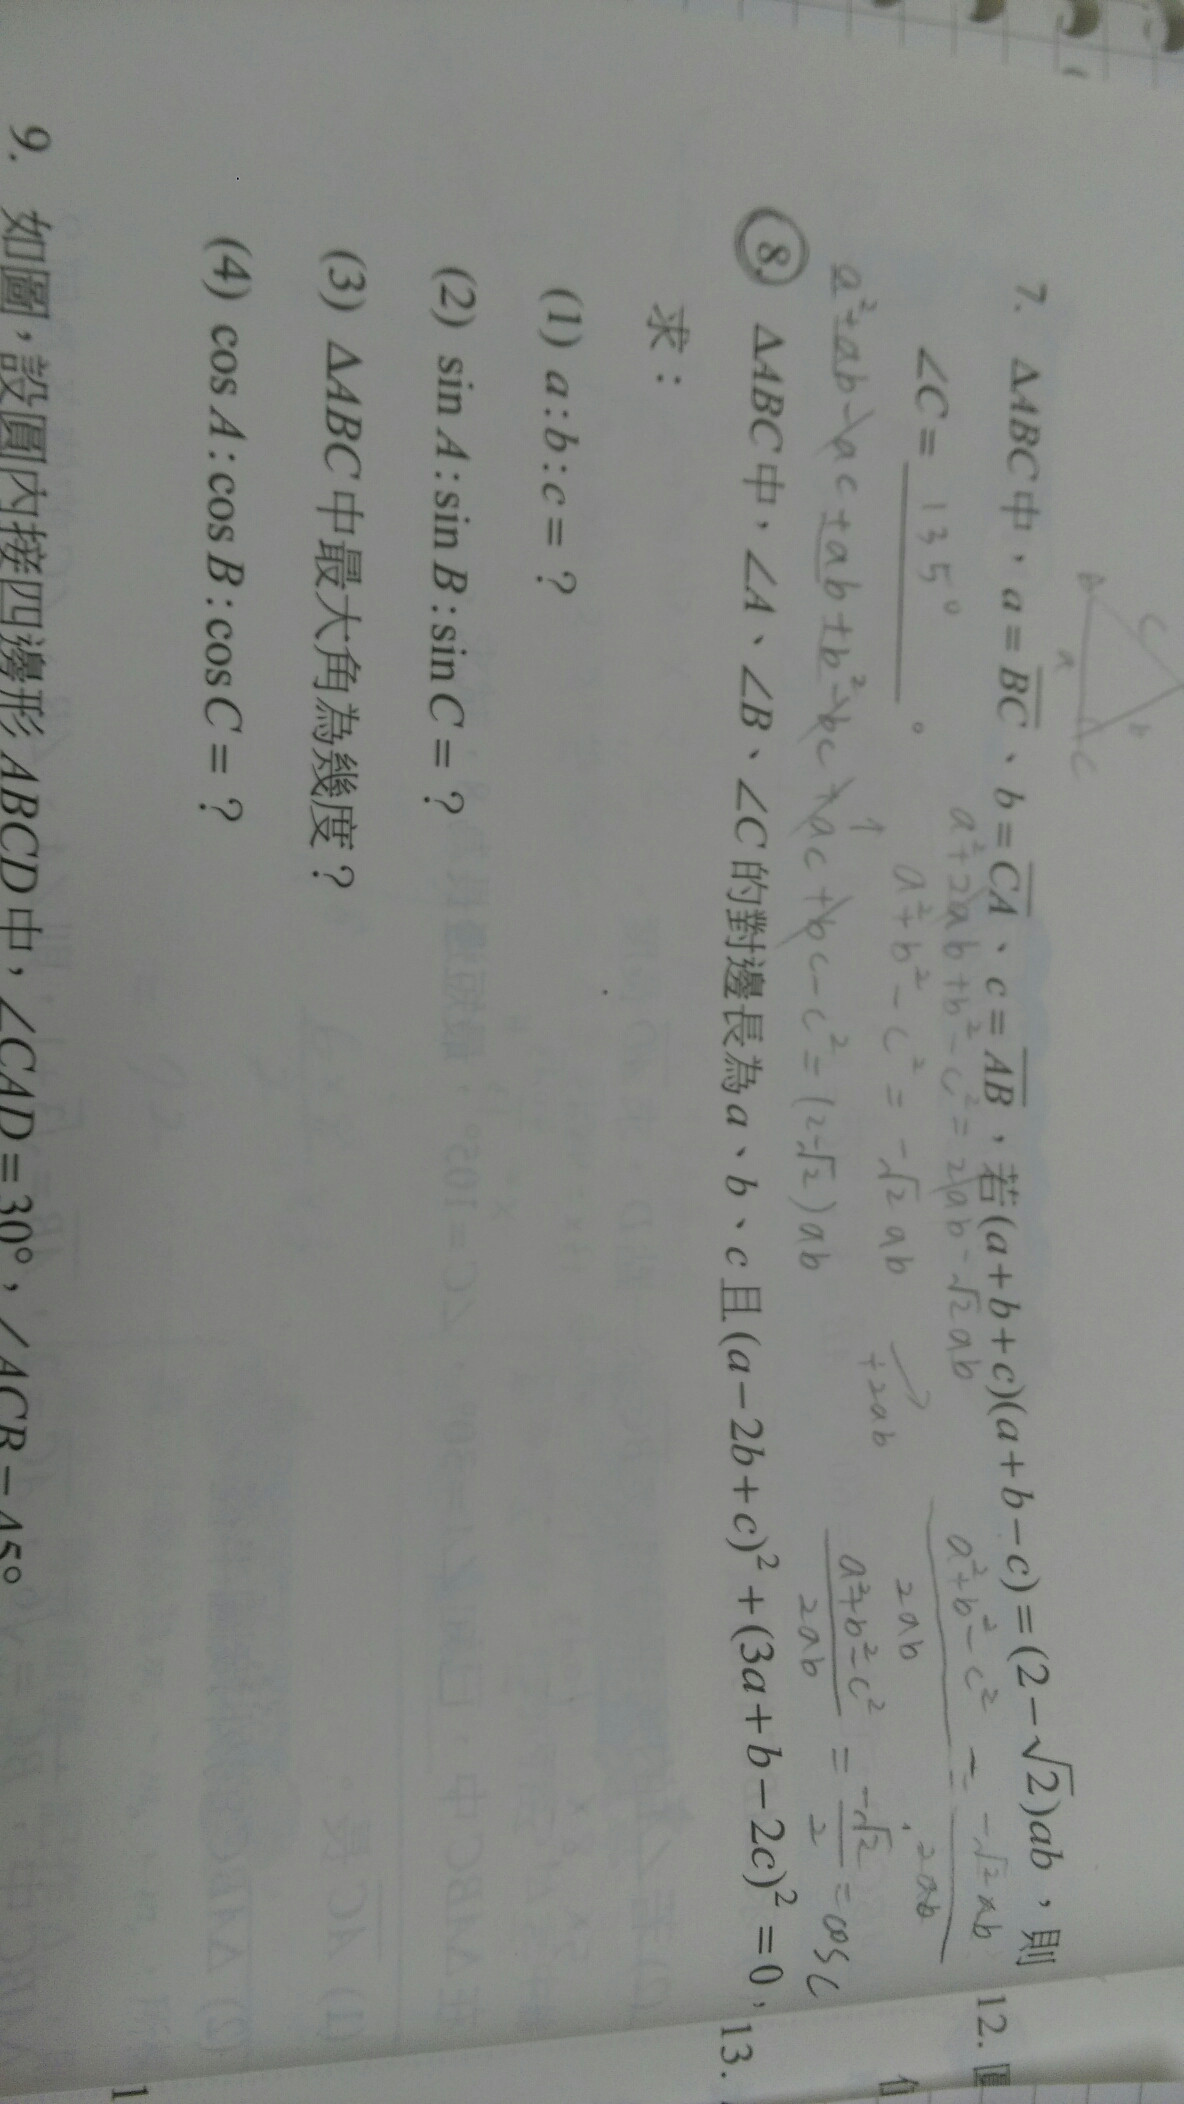 7. ΔABC中，a=BC、b=CA、c=AB，若(a+b+c)(a+b-c)=(2-√2)ab，則
∠C= 135° 。
a²+2ab+b²-c²=2ab-√2ab
a²+b²-c²=-√2ab
+2ab
a²+b²-c² = -√2ab
2ab 2ab
a²+b²-c² = -√2 = cos C
2ab 2
a²+ab-ac+ab+b²-bc+ac+bc-c²=(2-√2)ab
B a C b c
8. ΔABC中，∠A、∠B、∠C的對邊長為a、b、c且(a-2b+c)²+(3a+b-2c)²=0，
求：
(1) a:b:c=？
(2) sin A:sin B:sin C=？
(3) ΔABC中最大角為幾度？
(4) cos A:cos B:cos C=？
9. 如圖，設圓內接四邊形ABCD中，∠CAD=30°，∠ACB=45°
12.
13.
1